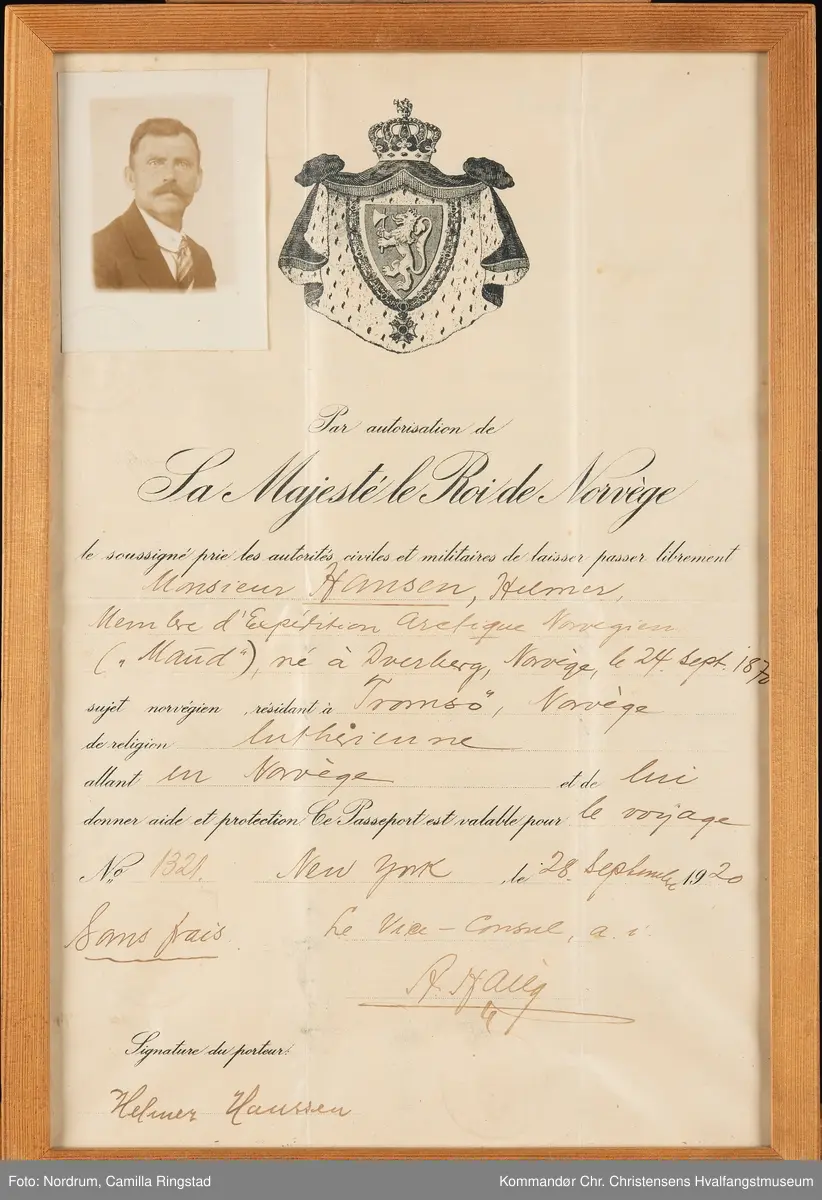 Par autorisation de
Sa Majesté le Roi de Norvège
le soussigné prie les autorités civiles et militaires de laisser passer librement
Monsieur Hansen, Helmer,
Membre d'Expédition Arctique Norvegien
(„Maud"), né à Dverberg, Norvège, le 24. sept. 1870
sujet norvégien, résidant à Tromsö, Norvège
de religion luthérienne
allant en Norvège et de lui
donner aide et protection. Ce Passeport est valable pour le voyage
No 1321. New York, le 28. Septembre 1920
Sans frais Le Vice-Consul, a. i.
A. Haug
Signature du porteur:
Helmer Hanssen
Foto: Nordrum, Camilla Ringstad Kommandør Chr. Christensens Hvalfangstmuseum